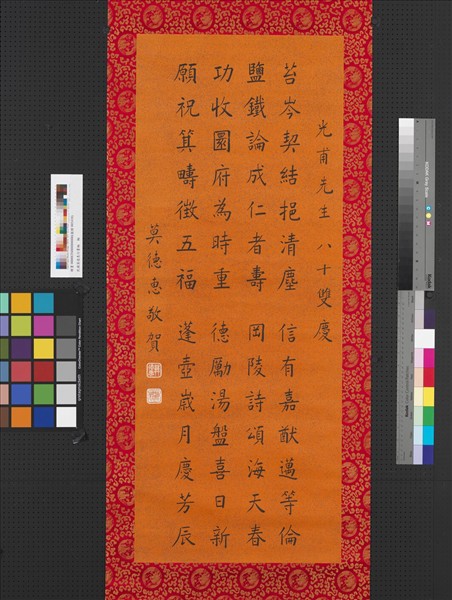 光甫先生八十雙慶
苔岑契結挹清塵 信有嘉猷邁等倫
鹽鐵論成仁者壽 岡陵詩頌海天春
功收圜府為時重 德勵湯盤喜日新
願祝箕疇徵五福 蓬壺歲月慶芳辰
莫德惠敬賀